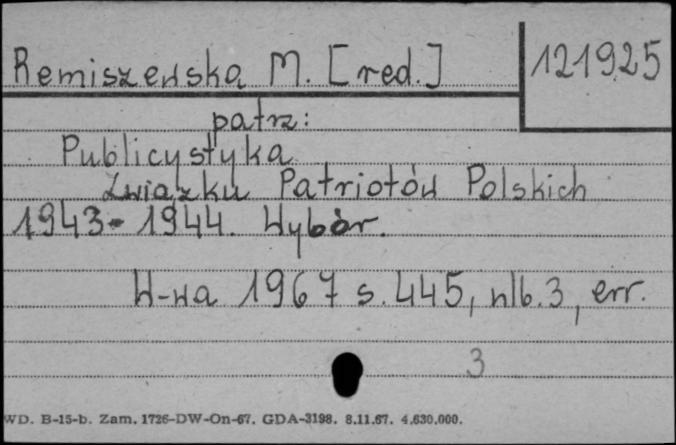 Remiszewska M. [red.]
121925
patrz:
Publicystyka
Związku Patriotów Polskich
1943-1944. Wybór.
W-wa 1967 s. 445, nlb. 3, err.
3
WD. B-15-b. Zam. 1726-DW-On-67. GDA-3198. 8.11.67. 4.630.000.